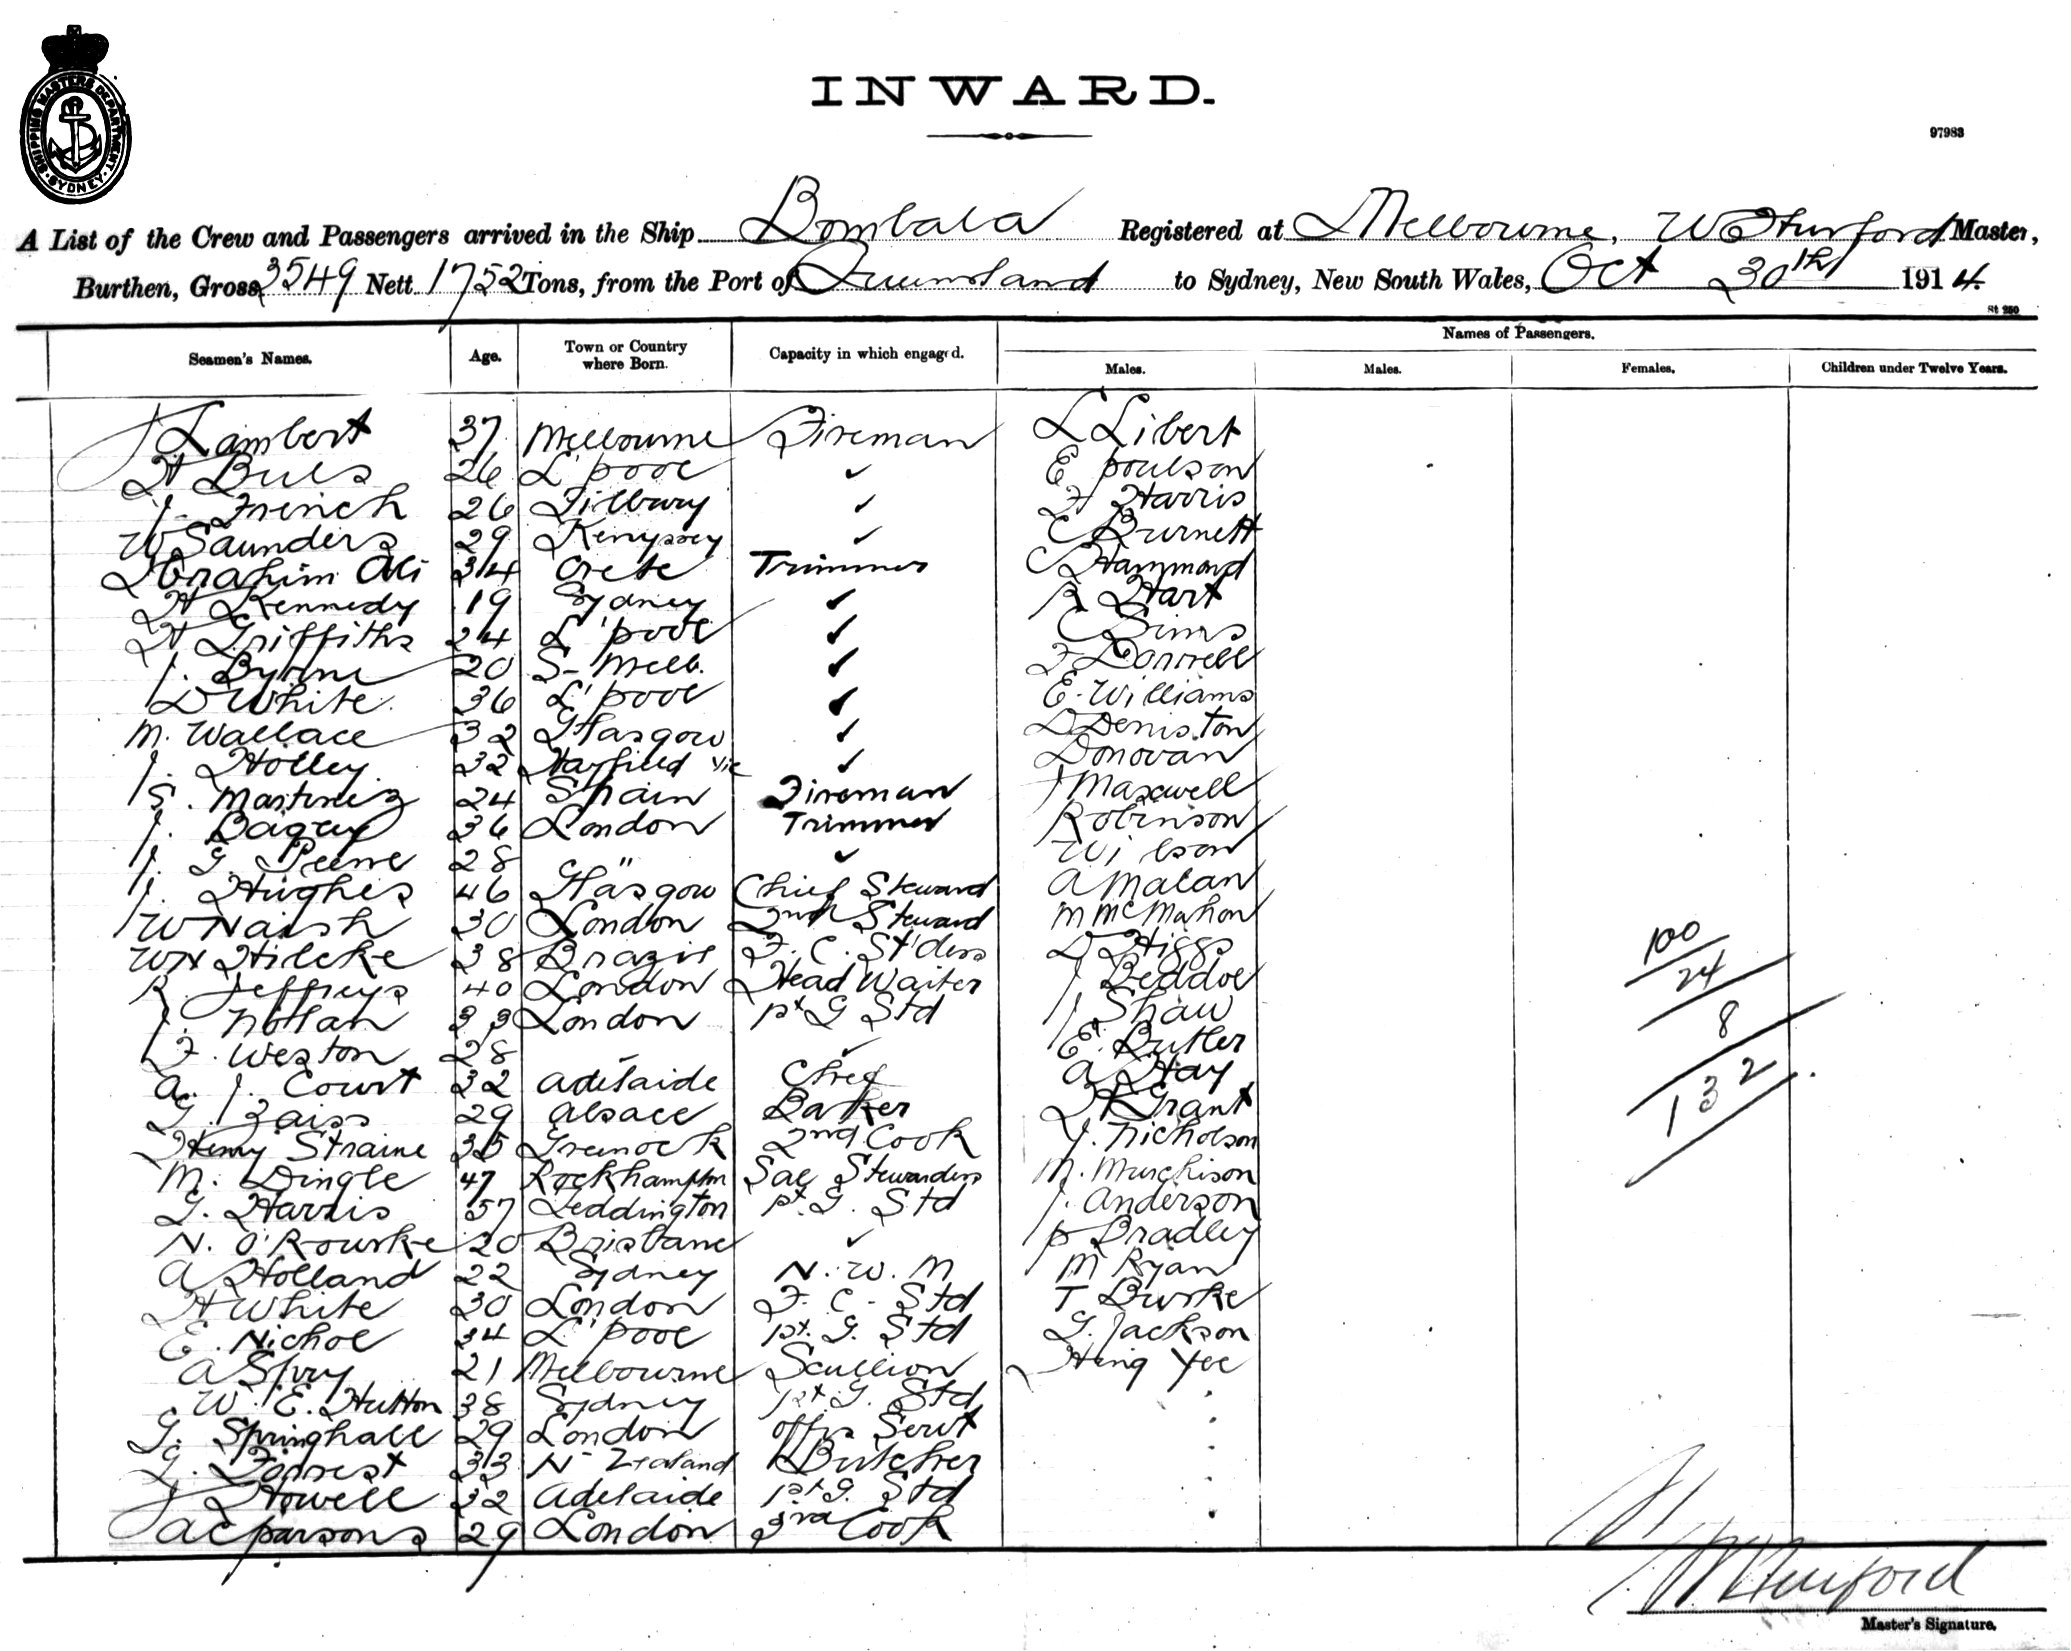 SHIPPING MASTERS DEPARTMENT. SYDNEY.
INWARD.
97983
A List of the Crew and Passengers arrived in the Ship Bombala Registered at Melbourne, Master,
Burthen, Gross 3549 Nett 1752 Tons, from the Port of Queensland to Sydney, New South Wales, Oct 30th 1914.
St 250
Seamen's Names. Age. Town or Country where Born. Capacity in which engaged. Names of Passengers.
Males. Males. Females. Children under Twelve Years.
J Lambert 37 Melbourne Fireman L Libert
H Buls 26 L'pool ✓ E Poulson
J. French 26 Tilbury ✓ F Harris
W Saunders 29 Kempsey ✓ C Burnett
Ibrahim Ali 34 Crete Trimmer C Hammond
H Kennedy 19 Sydney ✓ R Hart
H Griffiths 24 L'pool ✓ C Sims
J. Byrne 20 S- Melb. ✓ F Donnell
D White 36 L'pool ✓ E. Williams
M. Wallace 32 Glasgow ✓ D Deniston
J. Holley 32 Vic ✓ Donovan
S. Martinez 24 Spain Fireman J Maxwell
J. 36 London Trimmer Robinson
J. G. 28 " ✓ Wilson
J. Hughes 46 Glasgow Chief Steward A Malan
W Naish 30 London 2nd Steward M McMahon
Wm Hilcke 38 Brazil F. C. St'dess D Higgs
R. Jeffreys 40 London Head Waiter J Beddoe
J. Nolan 33 London Pt G Std J Shaw
F. Weston 28 " ✓ E. Butler
A. J. Court 32 Adelaide Chef A Hay
G. Zaiss 29 Alsace Baker D K Grant
Henry Straine 35 Greenock 2nd Cook J. Nicholson
M. Dingle 47 Rockhampton Sal Stewardess M. Murchison
G. Harris 57 Teddington Pt. G. Std J. Anderson
N. O'Rourke 20 Brisbane ✓ P Bradley
A Holland 22 Sydney N. W. M M Ryan
H White 30 London F. C. Std T Burke
E. Nichol 34 L'pool Pt. G. Std G. Jackson
A Spry 21 Melbourne Scullion Hing Yee
W. E. Hutton 38 Sydney Pt. G. Std
G. Springhall 29 London Offrs Servt
G. Forrest 33 N- Zealand Butcher
J Howell 32 Adelaide Pt G. Std
A C Parsons 29 London 3rd Cook
100
24
8
132
Master's Signature.